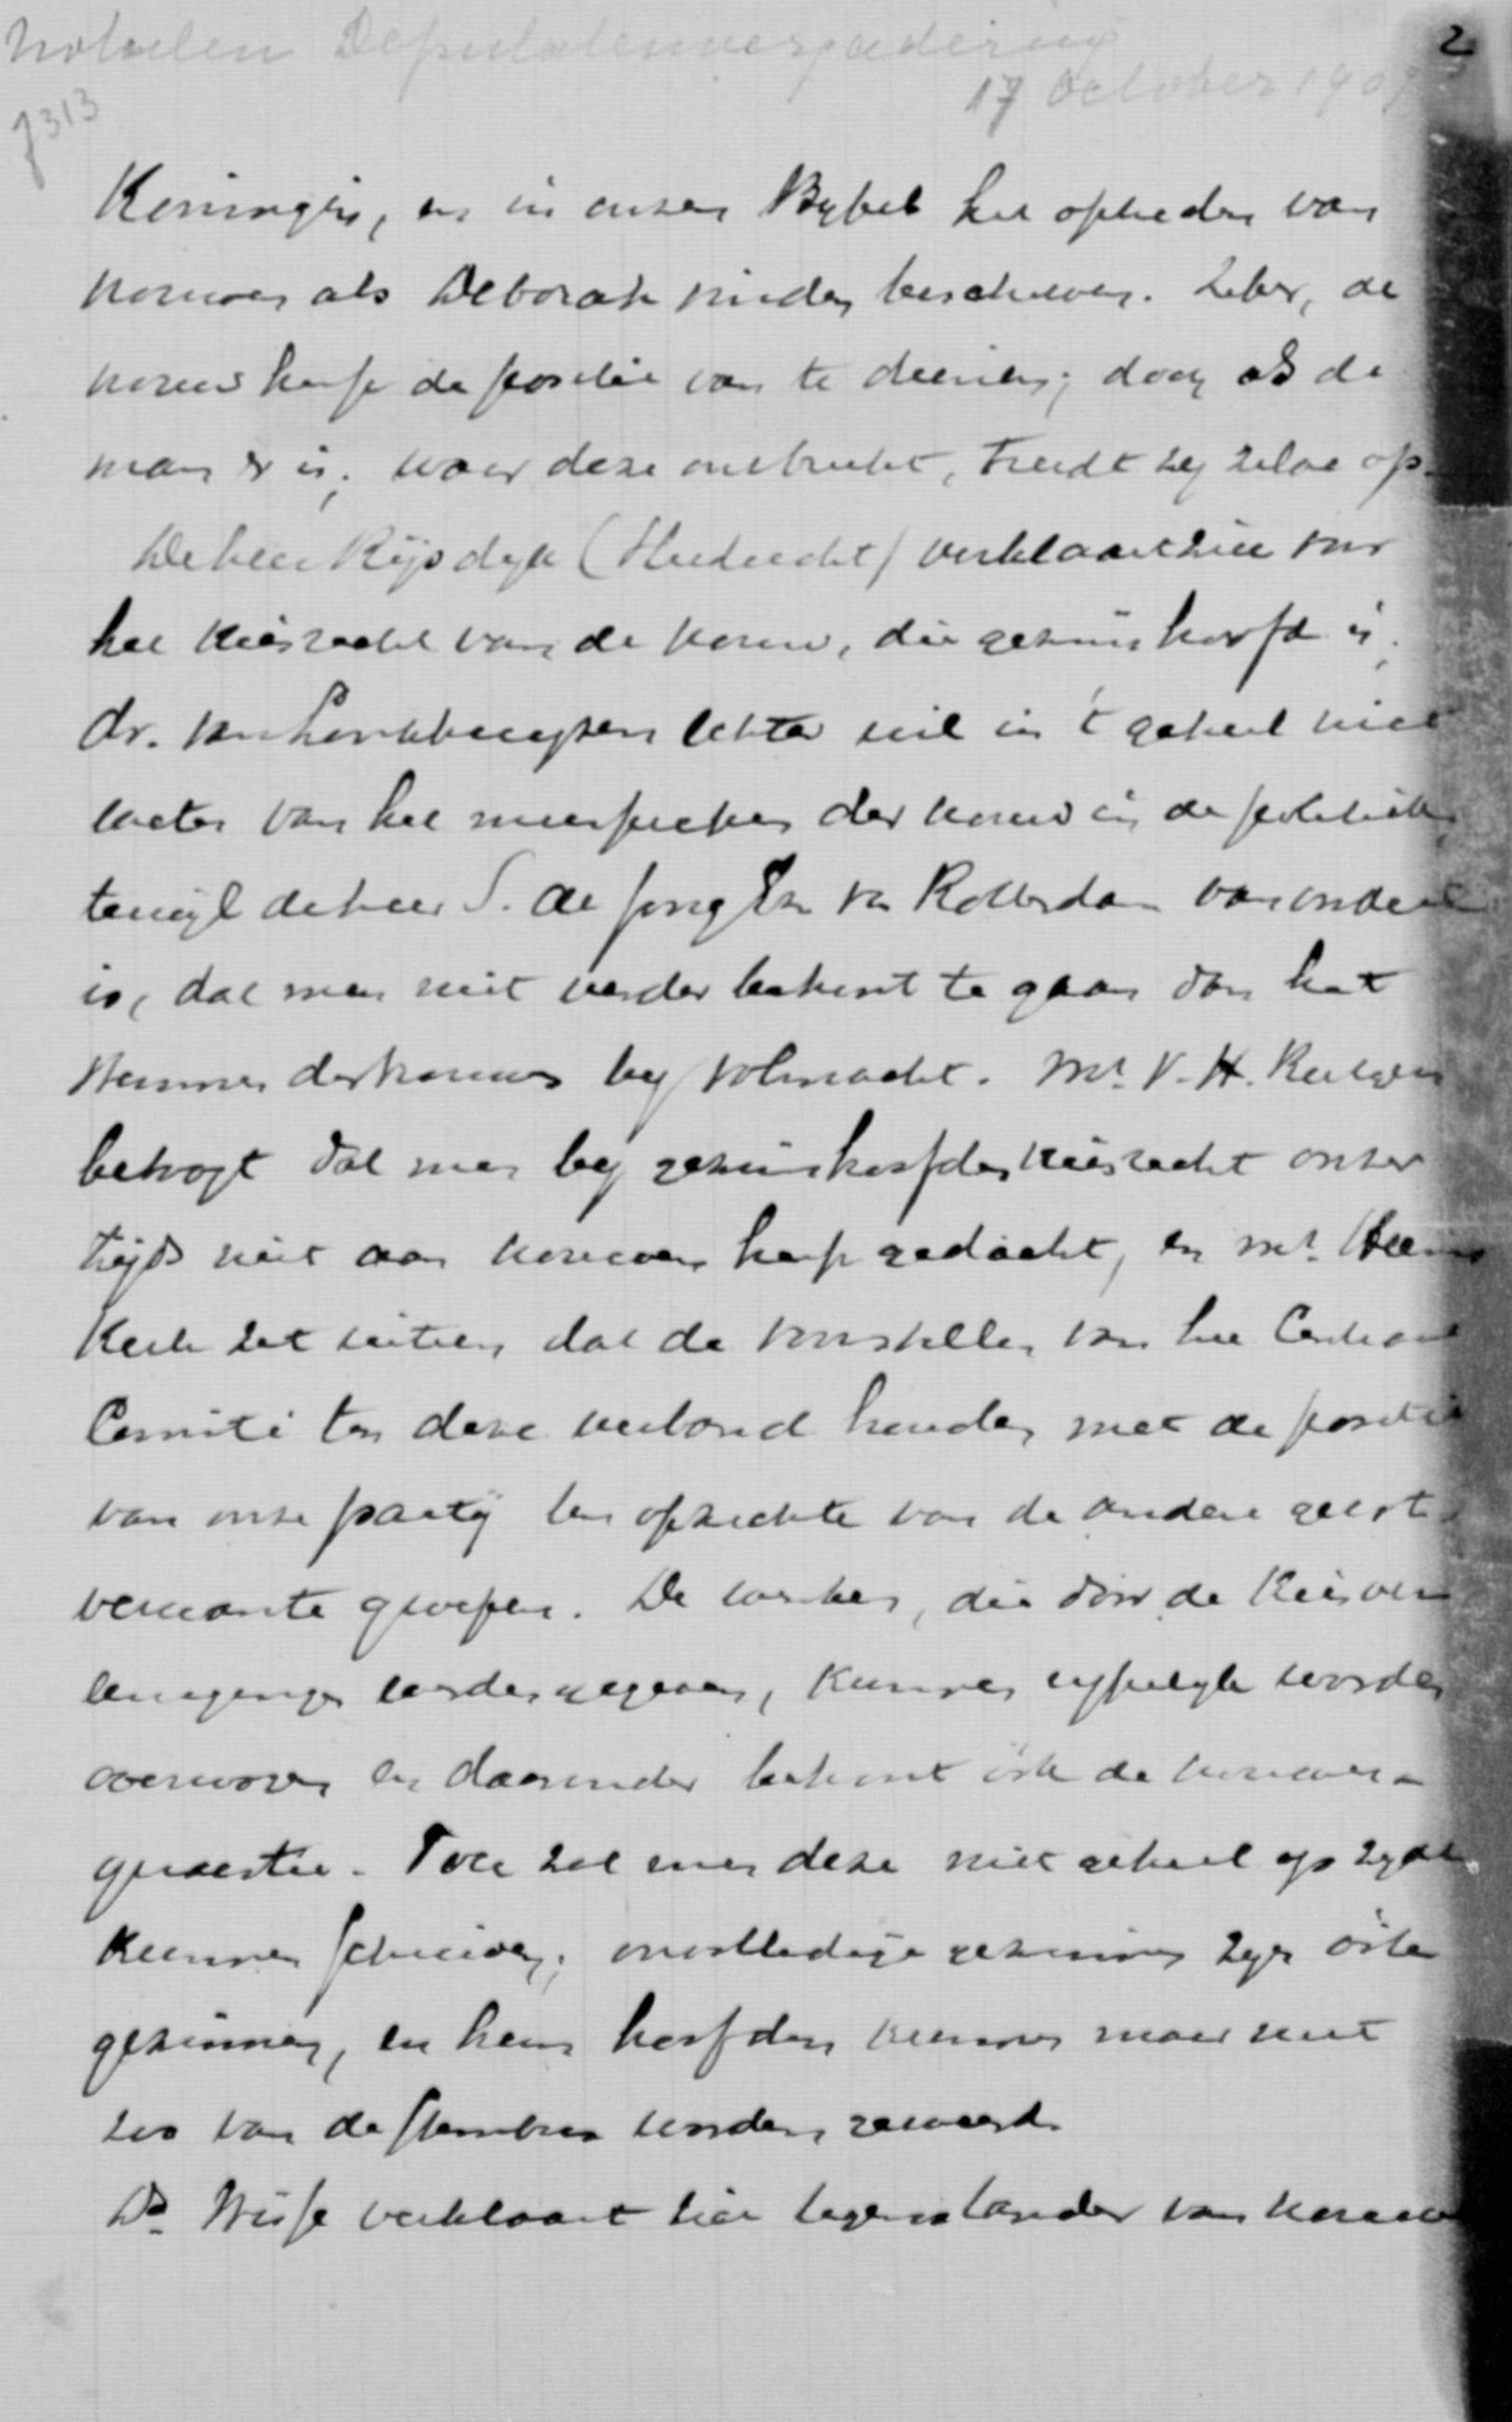 Notulen Deputatenvergadering
2
17 October 190
J313
Koningin, en in onzen Bybel het optreden van
vrouwen als Deborah vinden beschreven. Zeker, de
vrouw heeft de positie van te dienen; doch als de
man er is; waar deze ontbreekt, treedt zij zelve op.
De heer Rijsdyk ( ) verklaart zich voor
het kiesrecht van de vrouw, die gezinshoofd is;
dr. van Lonkhuyzen echter wil in 't geheel niet
weten van het meespreken der vrouw in de politiek,
terwijl de heer S. de Jong Ezn van Rotterdam van oordeel
is, dat men niet verder behoort te gaan dan het
stemmen der vrouwen by volmacht. Mr. V. H. Rutgers
betoogt dat men by gezinshoofdenkiesrecht onzer
tijds niet aan vrouwen heeft gedacht, en mr. Heems
kerk zet uiteen, dat de voorstellen van het Centraal
Comité ten deze verband houden met de positie
van onze party ten opzichte van de andere geest
verwante groepen. De wenken, die door de Kiesver
eenigingen worden gegeven, kunnen ernstig worden
overwogen en daaronder behoort ook de vrouwen-
quaestie. Toch zal men deze niet geheel op zyde
kunnen schuiven; onvolledige gezinnen zyn ook
gezinnen, en hun hoofden kunnen maar niet
zoo van de stembus worden geweerd.
Ds. Wisse verklaart zich tegenstander van vrouwen